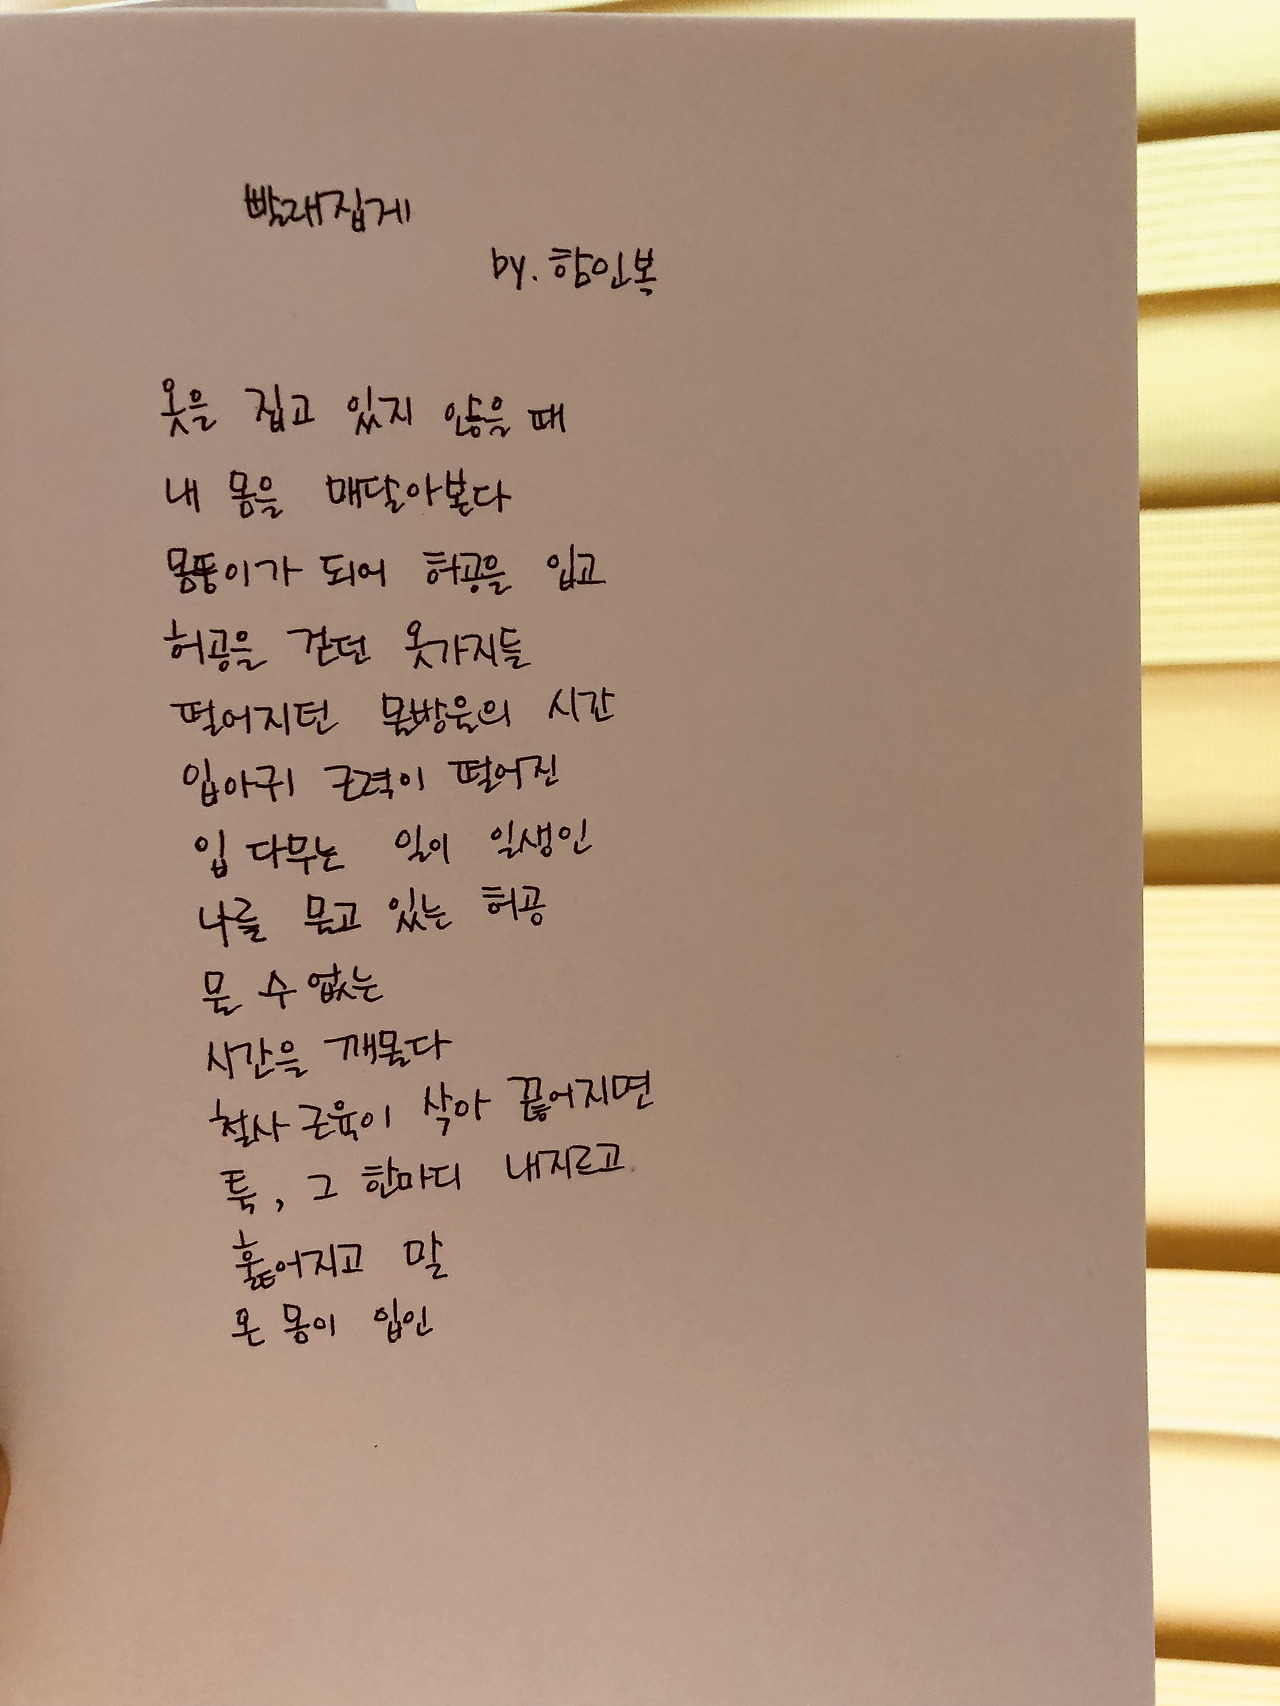 빨래집게
by. 함인복
옷을 집고 있지 않을 때
내 몸을 매달아본다
몸뚱이가 되어 허공을 입고
허공을 걷던 옷가지들
떨어지던 물방울의 시간
입아귀 근력이 떨어진
입 다무는 일이 일생인
나를 물고 있는 허공
물 수 없는
시간을 깨물다
철사 근육이 삭아 끊어지면
툭, 그 한마디 내지르고
흩어지고 말
온 몸이 입인